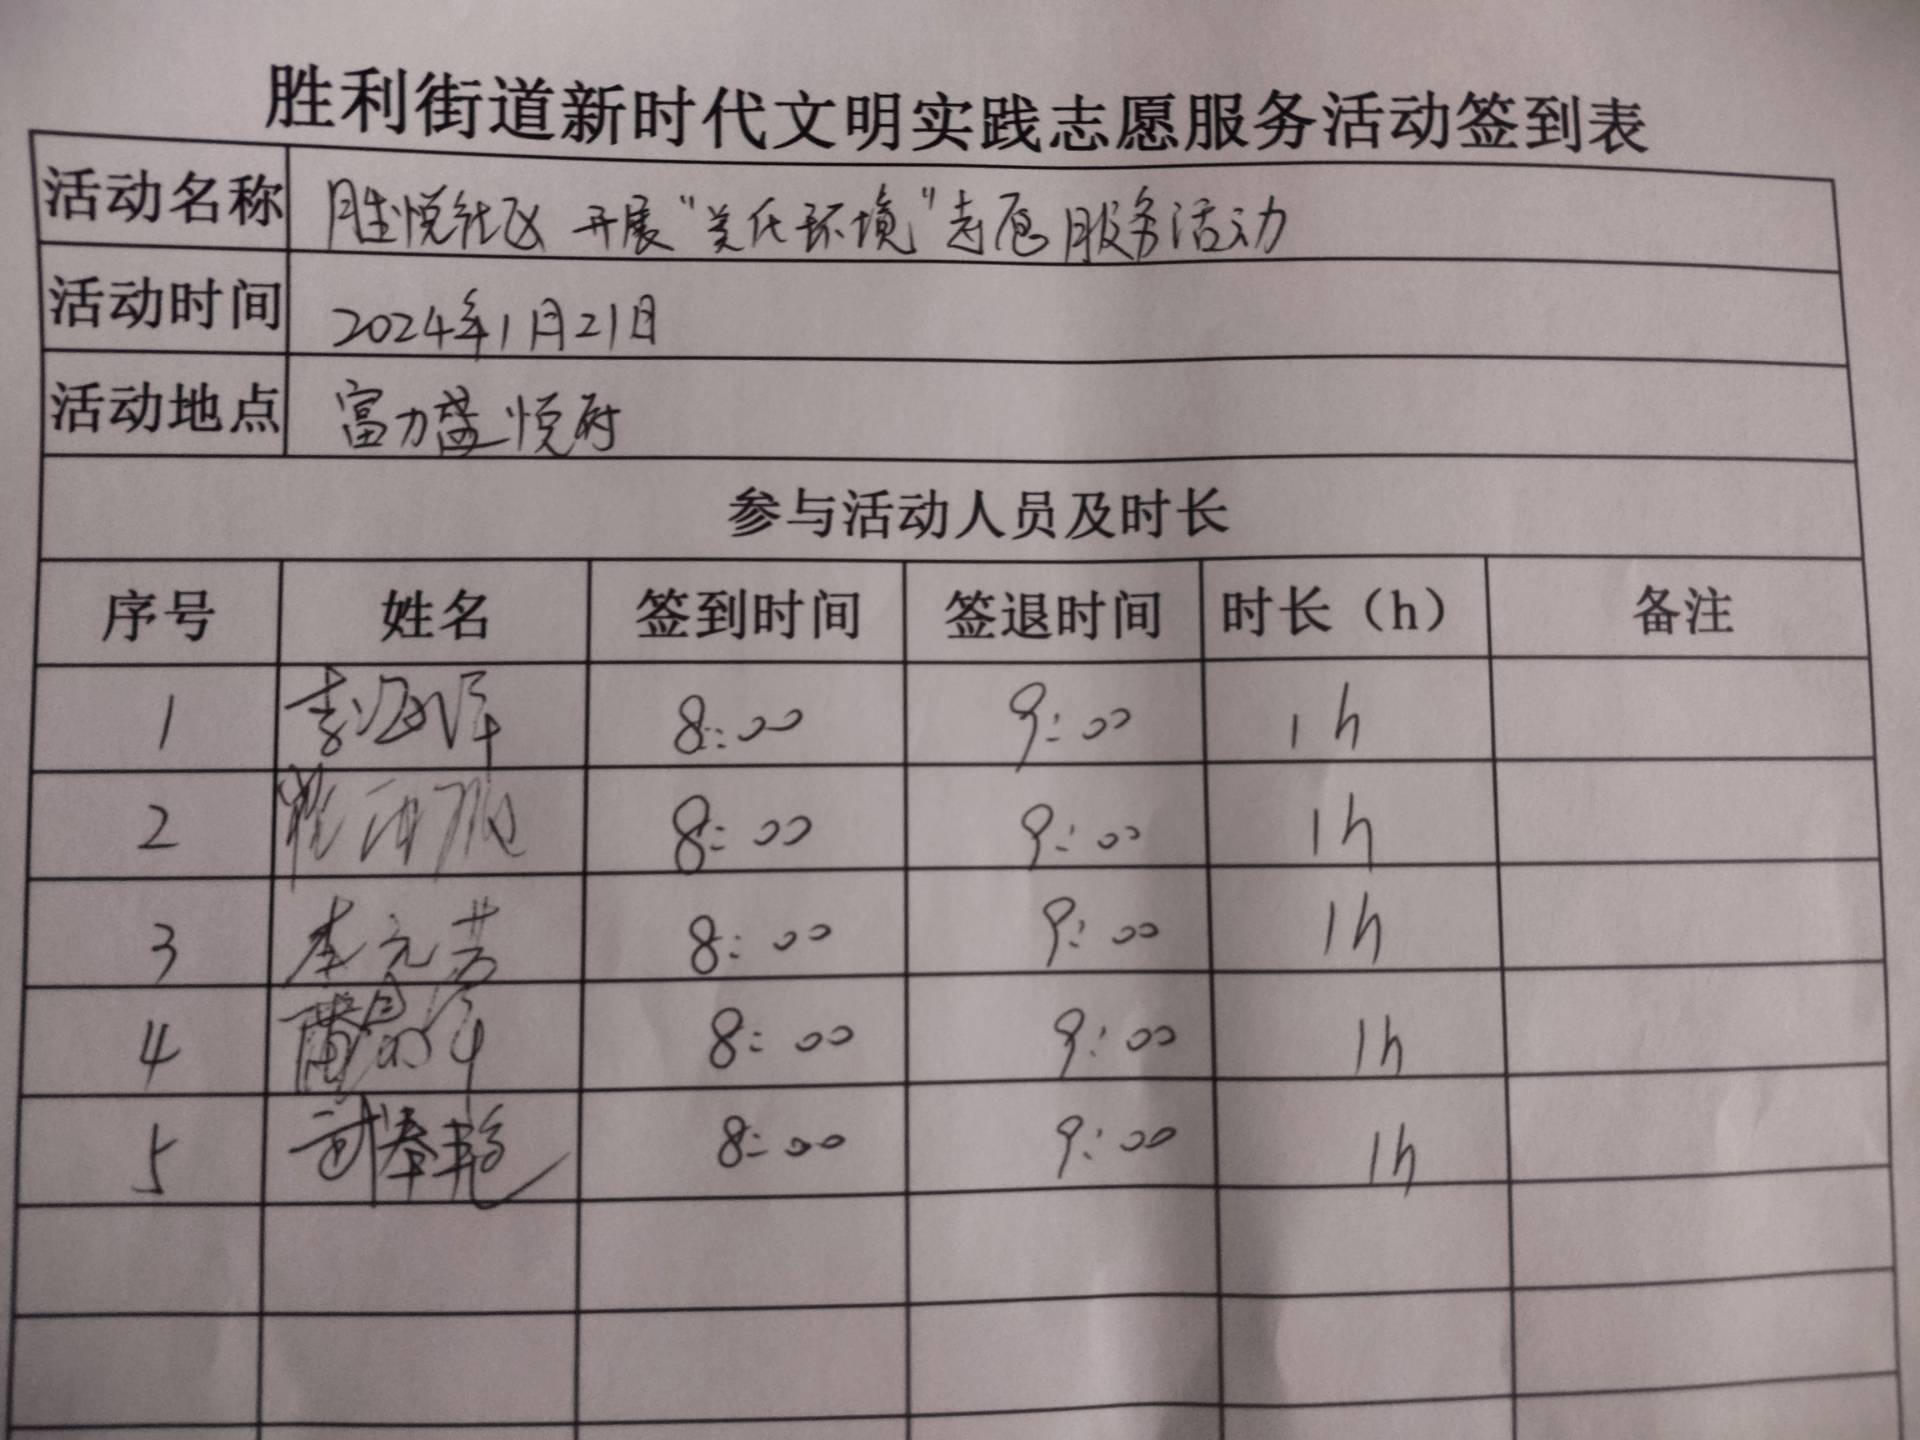 胜利街道新时代文明实践志愿服务活动签到表
活动名称 胜悦社区 开展“美化环境”志愿服务活动
活动时间 2024年1月21日
活动地点 富力盛悦府
参与活动人员及时长
序号 姓名 签到时间 签退时间 时长（h） 备注
1 8:00 9:00 1h
2 8:00 9:00 1h
3 李元芳 8:00 9:00 1h
4 8:00 9:00 1h
5 8:00 9:00 1h